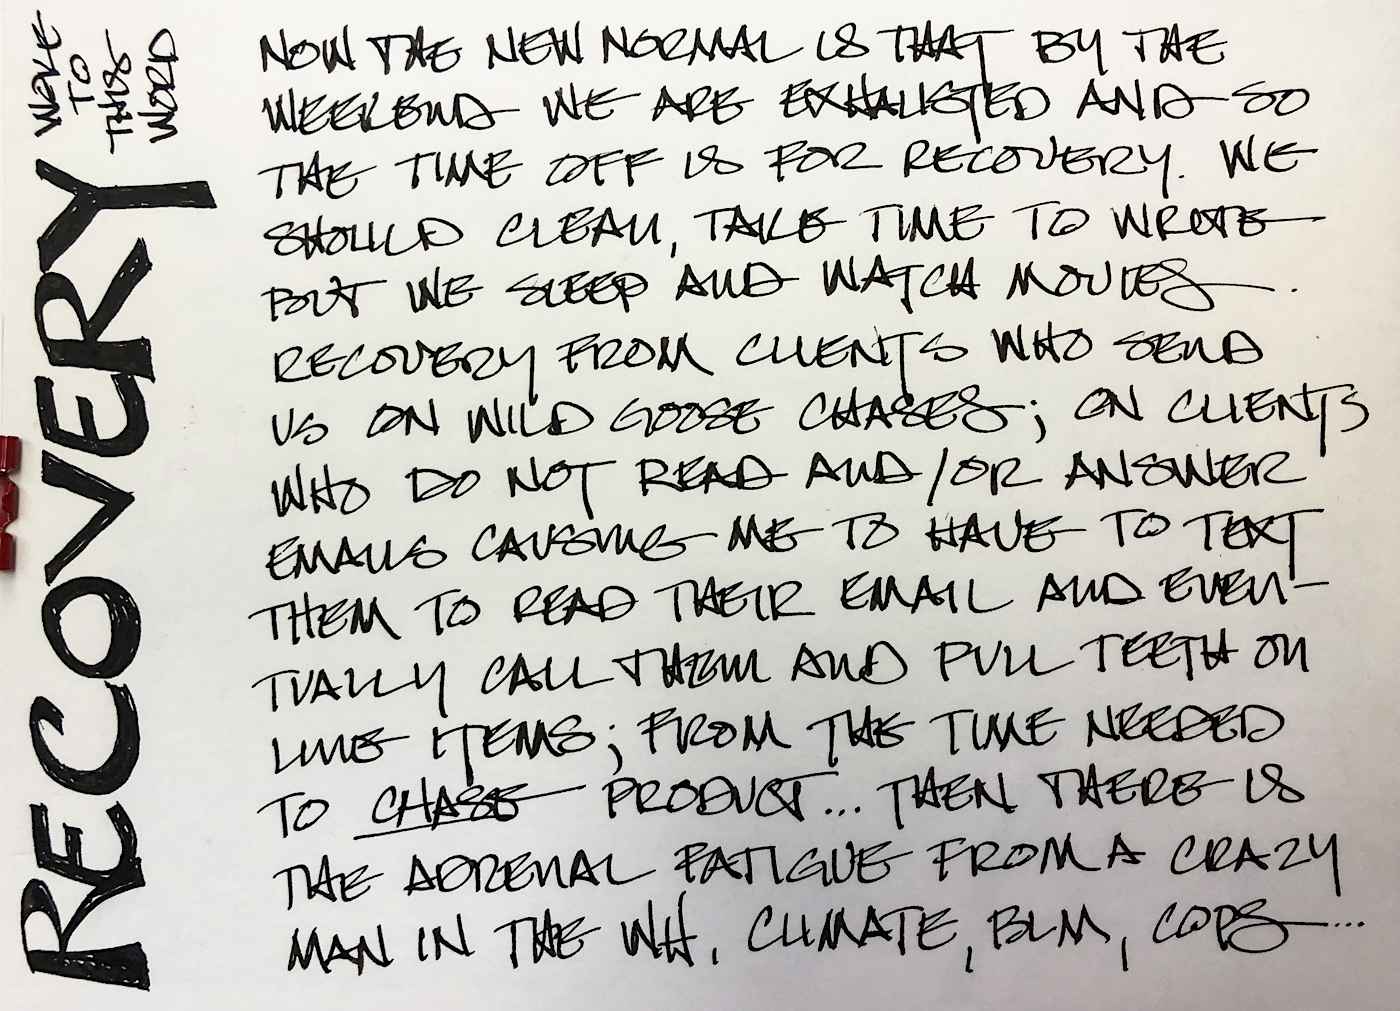 WOKE
TO
THIS
WORD
RECOVERY
NOW THE NEW NORMAL IS THAT BY THE
WEEKEND WE ARE EXHAUSTED AND SO
THE TIME OFF IS FOR RECOVERY. WE
SHOULD CLEAN, TAKE TIME TO WROTE
BUT WE SLEEP AND WATCH MOVIES.
RECOVERY FROM CLIENTS WHO SEND
US ON WILD GOOSE CHASES; ON CLIENTS
WHO DO NOT READ AND/OR ANSWER
EMAILS CAUSING ME TO HAVE TO TEXT
THEM TO READ THEIR EMAIL AND EVEN-
TUALLY CALL THEM AND PULL TEETH ON
LINE ITEMS; FROM THE TIME NEEDED
TO CHASE PRODUCT... THEN THERE IS
THE ADRENAL FATIGUE FROM A CRAZY
MAN IN THE WH, CLIMATE, BLM, COPS...